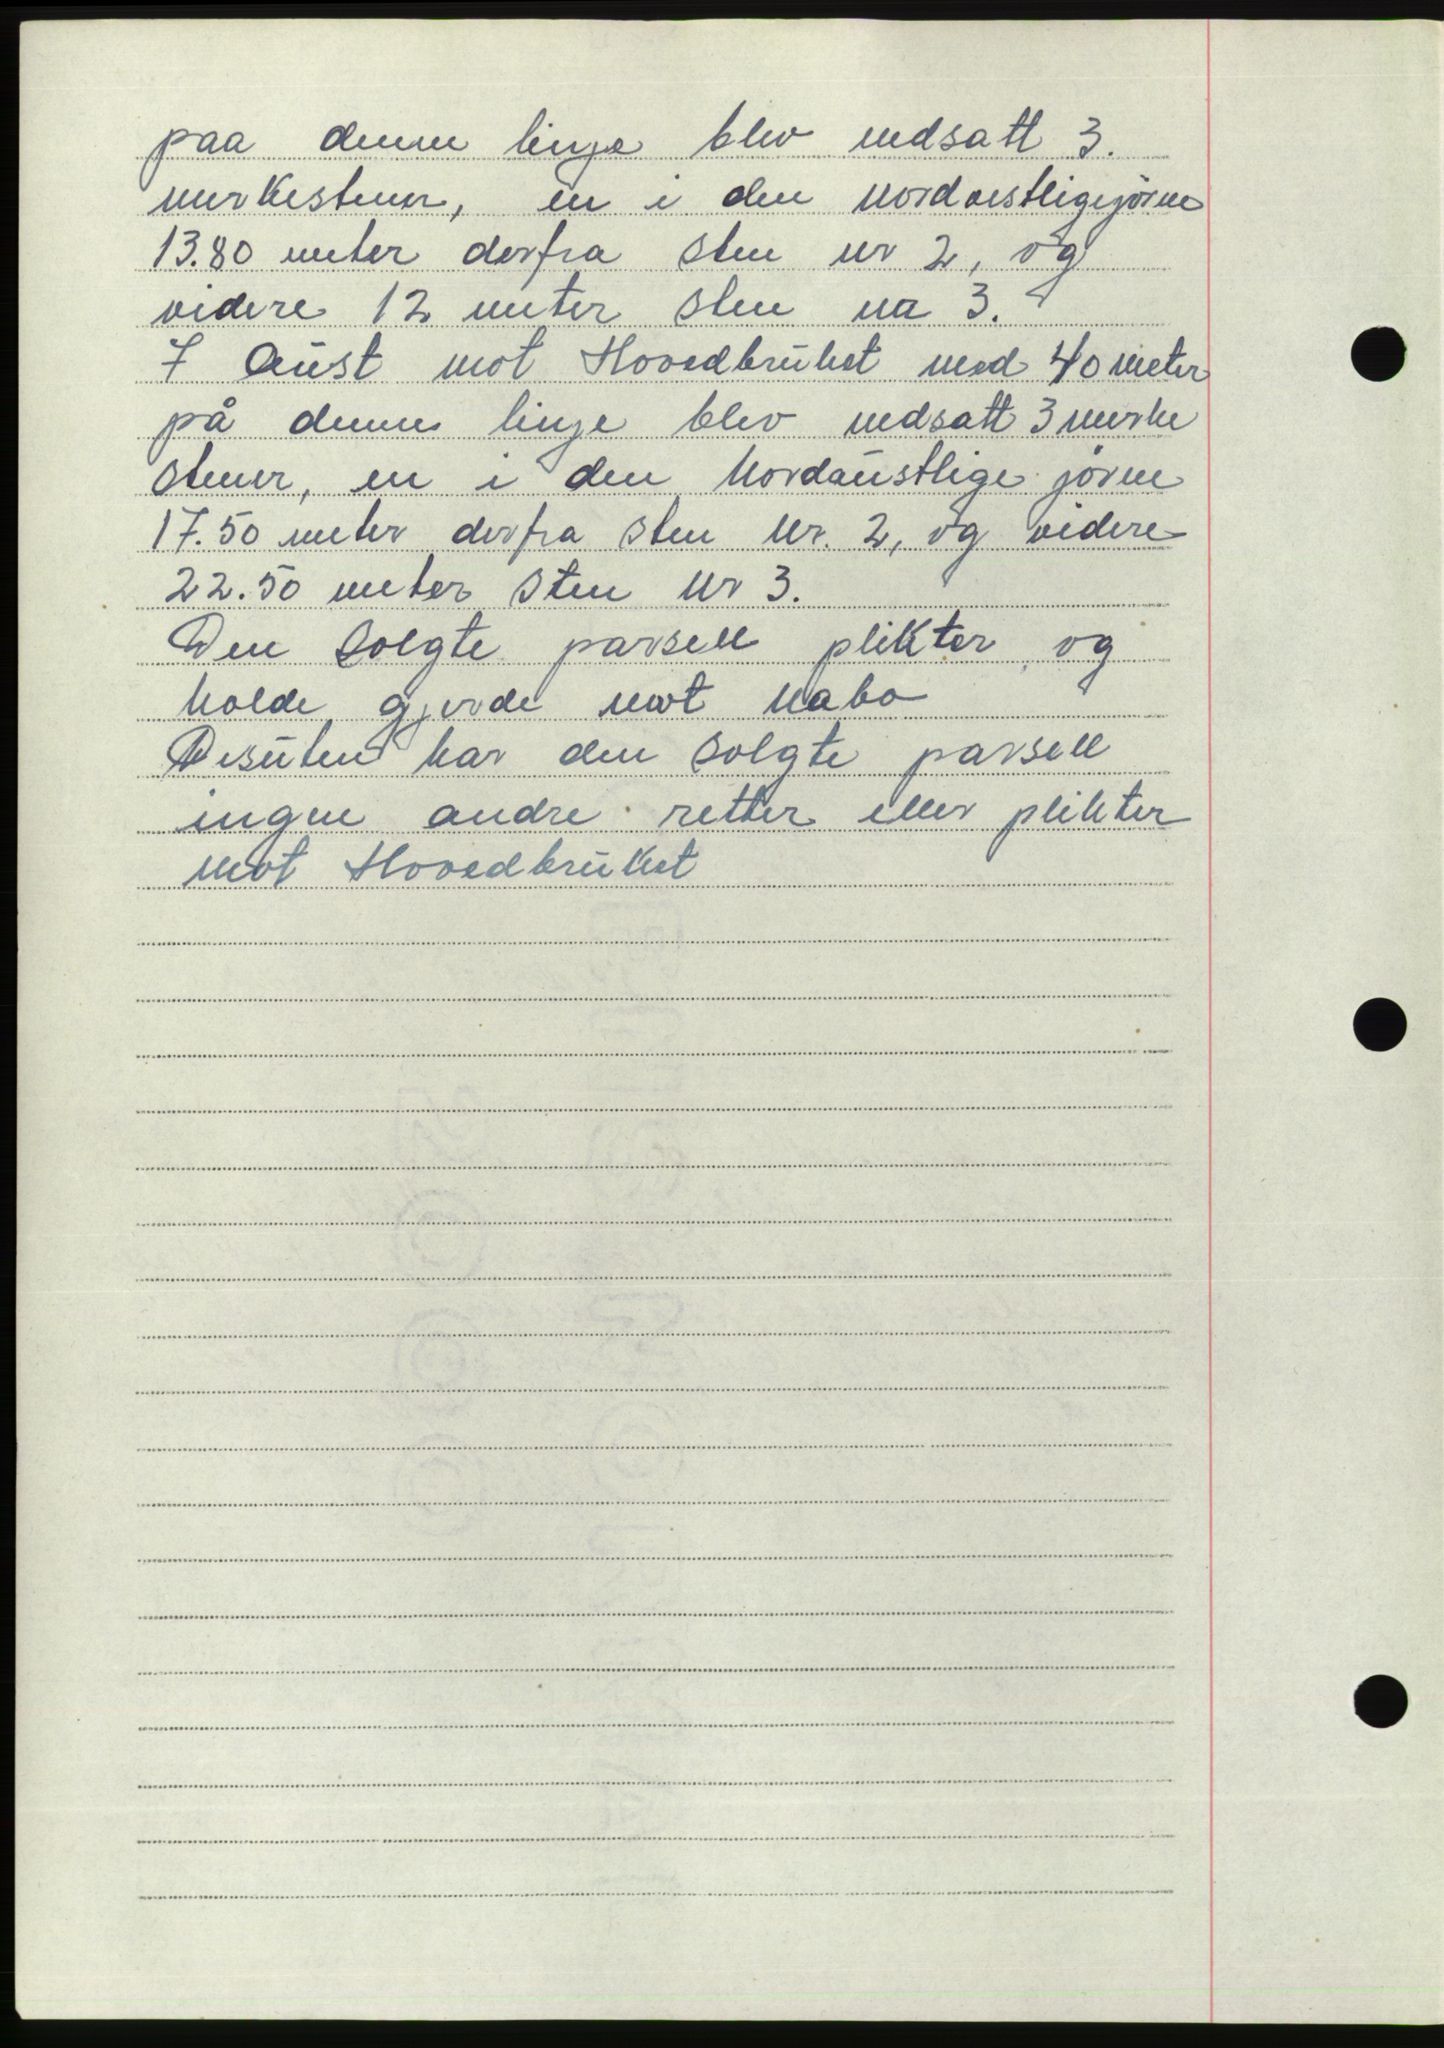 paa denne linje blev nedsatt 3.
merkestener, en i den nordvestligejørne
13.80 meter derfra sten nr 2, og
videre 12 meter sten na 3.
I Aust mot Hovedbruket med 40 meter
på denne linje blev nedsatt 3 merke
stener, en i den Nordaustlige jørne
17.50 meter derfra sten Nr. 2, og videre
22.50 meter sten Nr 3.
Den solgte parsell plikter og
holde gjerde mot Nabo
Desuten har den solgte parsell
ingen andre retter eller plikter
mot Hovedbruket